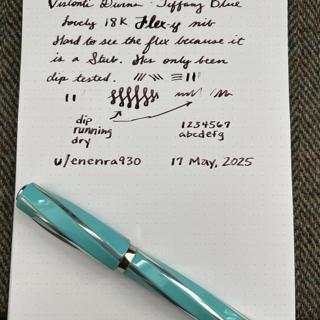 Visconti Divina · Tiffany Blue
Lovely 18K Flex-y nib
Hard to see the flex because it
is a Stub. Has only been
dip tested.
dip
running
dry
1234567
abcdefg
u/enenra930
17 May, 2025